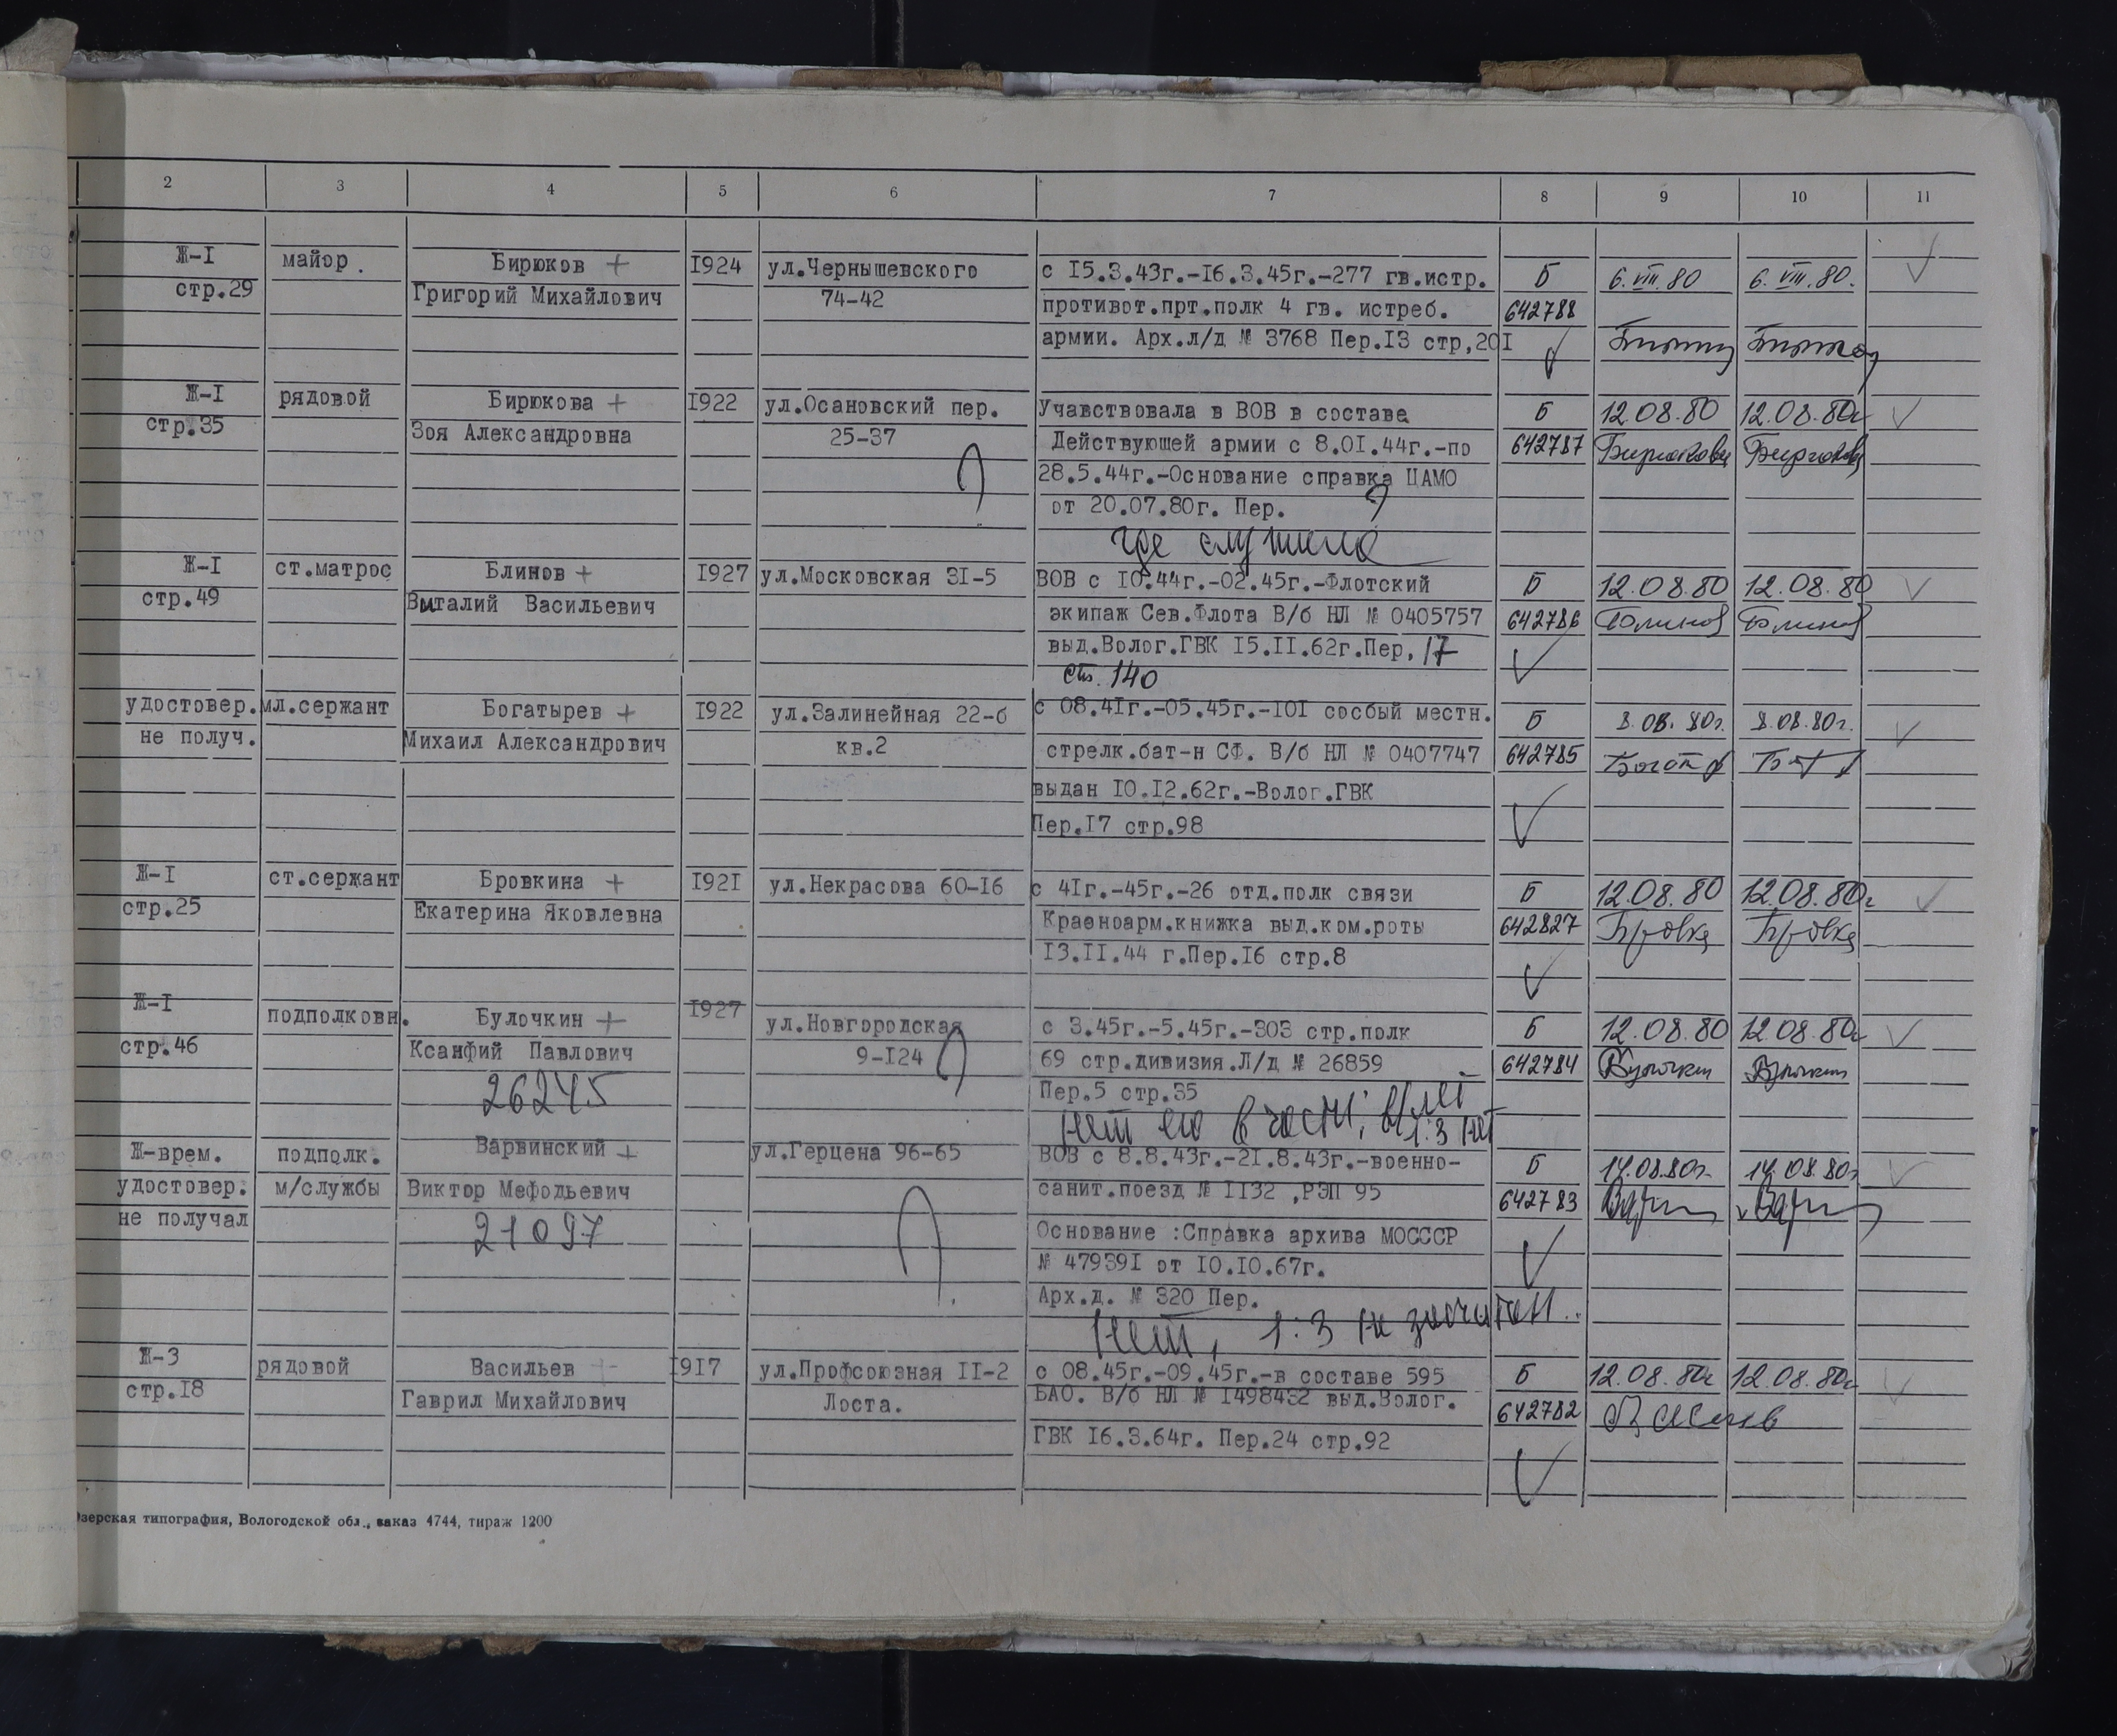 2 3 4 5 6 7 8 9 10 11
Ж-I майор. Бирюков + I924 ул.Чернышевского с I5.3.43г.-I6.3.45г.-277 гв.истр. Б 6.VIII.80 6.VIII.80.
стр.29 Григорий Михайлович 74-42 противот.прт.полк 4 гв. истреб. 642788
армии. Арх.л/д № 3768 Пер.I3 стр,20I
Ж-I рядовой Бирюкова + I922 ул.Осановский пер. Учавствовала в ВОВ в составе Б 12.08.80 12.08.80г
стр.35 Зоя Александровна 25-37 Действующей армии с 8.0I.44г.-по 642787 Бирюкова Бирюкова
28.5.44г.-Основание справка ЦАМО
от 20.07.80г. Пер. ?
где служила
Ж-I ст.матрос Блинов + I927 ул.Московская 3I-5 ВОВ с I0.44г.-02.45г.-Флотский Б 12.08.80 12.08.80
стр.49 Виталий Васильевич экипаж Сев.Флота В/б НЛ № 0405757 642786 Блинов Блинов
выд.Волог.ГВК I5.II.62г.Пер, 17
ст. 140
удостовер. мл.сержант Богатырев + I922 ул.Залинейная 22-б с 08.4Iг.-05.45г.-I0I сосбый местн. Б 8.08.80г. 8.08.80г.
не получ. Михаил Александрович кв.2 стрелк.бат-н СФ. В/б НЛ № 0407747 642785
выдан I0.I2.62г.-Волог.ГВК
Пер.I7 стр.98
Ж-I ст.сержант Бровкина + I92I ул.Некрасова 60-I6 с 4Iг.-45г.-26 отд.полк связи Б 12.08.80 12.08.80г
стр.25 Екатерина Яковлевна Красноарм.книжка выд.ком.роты 642827 Бровка Бровка
I3.II.44 г.Пер.I6 стр.8
Ж-I подполковн. Булочкин + I927 ул.Новгородская с 3.45г.-5.45г.-303 стр.полк Б 12.08.80 12.08.80г
стр.46 Ксанфий Павлович 9-I24 69 стр.дивизия.Л/д № 26859 642784 Булочкин Булочкин
26245 Пер.5 стр.35
нет его в части;
1:3 нет
Ж-врем. подполк. Варвинский + ул.Герцена 96-65 ВОВ с 8.8.43г.-2I.8.43г.-военно- Б 14.08.80г. 14.08.80г
удостовер. м/службы Виктор Мефодьевич санит.поезд № II32 ,РЭП 95 642783
не получал 21097 Основание :Справка архива МОСССР
№ 47939I от I0.I0.67г.
Арх.д. № 320 Пер.
нет, 1:3 не
Ж-3 рядовой Васильев + I9I7 ул.Профсоюзная II-2 с 08.45г.-09.45г.-в составе 595 Б 12.08.80г 12.08.80г
стр.I8 Гаврил Михайлович Лоста. БАО. В/б НЛ № I498432 выд.Волог. 642782
ГВК I6.3.64г. Пер.24 стр.92
зерская типография, Вологодской обл., заказ 4744, тираж 1200